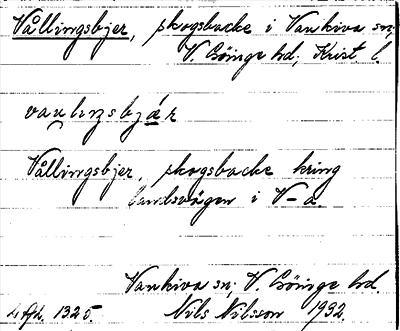 Vållingsbjer, skogsbacke i Vankiva sn;
V. Göinge hd; Krist l.
Vållingsbjer, skogsbacke kring
landsvägen i V-a.
Vankiva sn; V. Göinge hd.
1325 Nils Nilsson 1932.